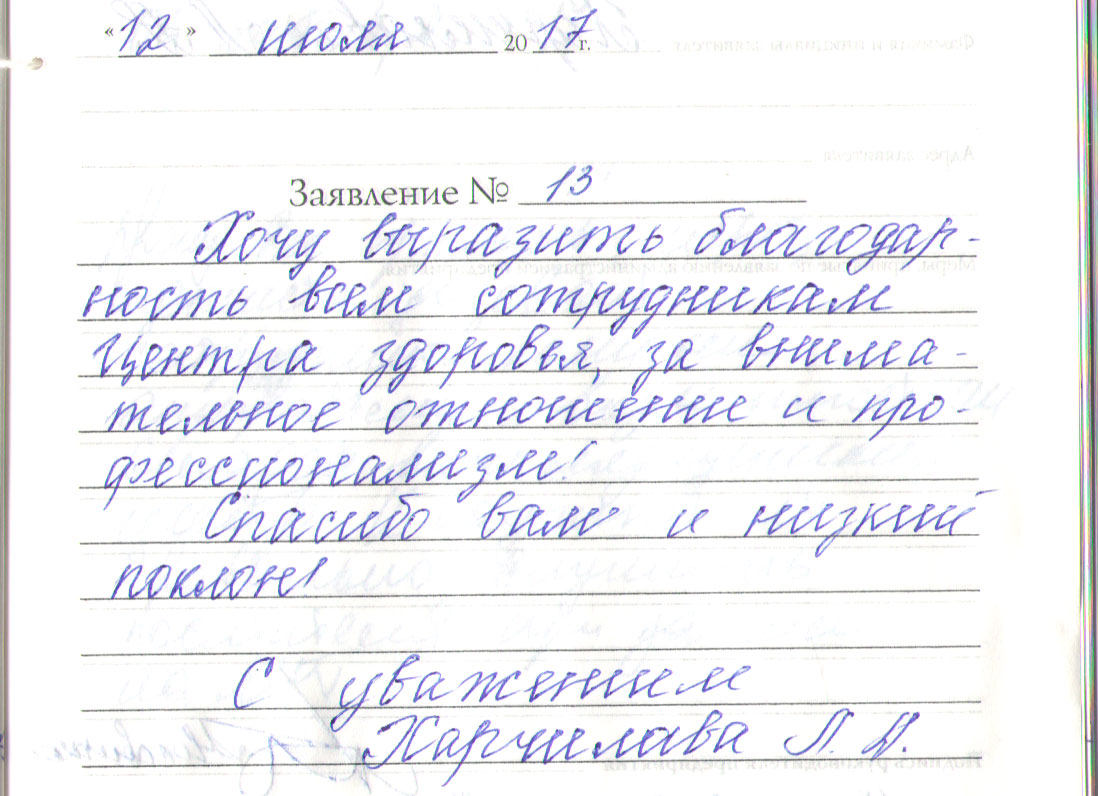 «12» июля 2017 г.
Заявление № 13
Хочу выразить благодар-
ность всем сотрудникам
Центра здоровья, за внима-
тельное отношение и про-
фессионализм!
Спасибо вам и низкий
поклон!
С уважением
Харчилава Л.